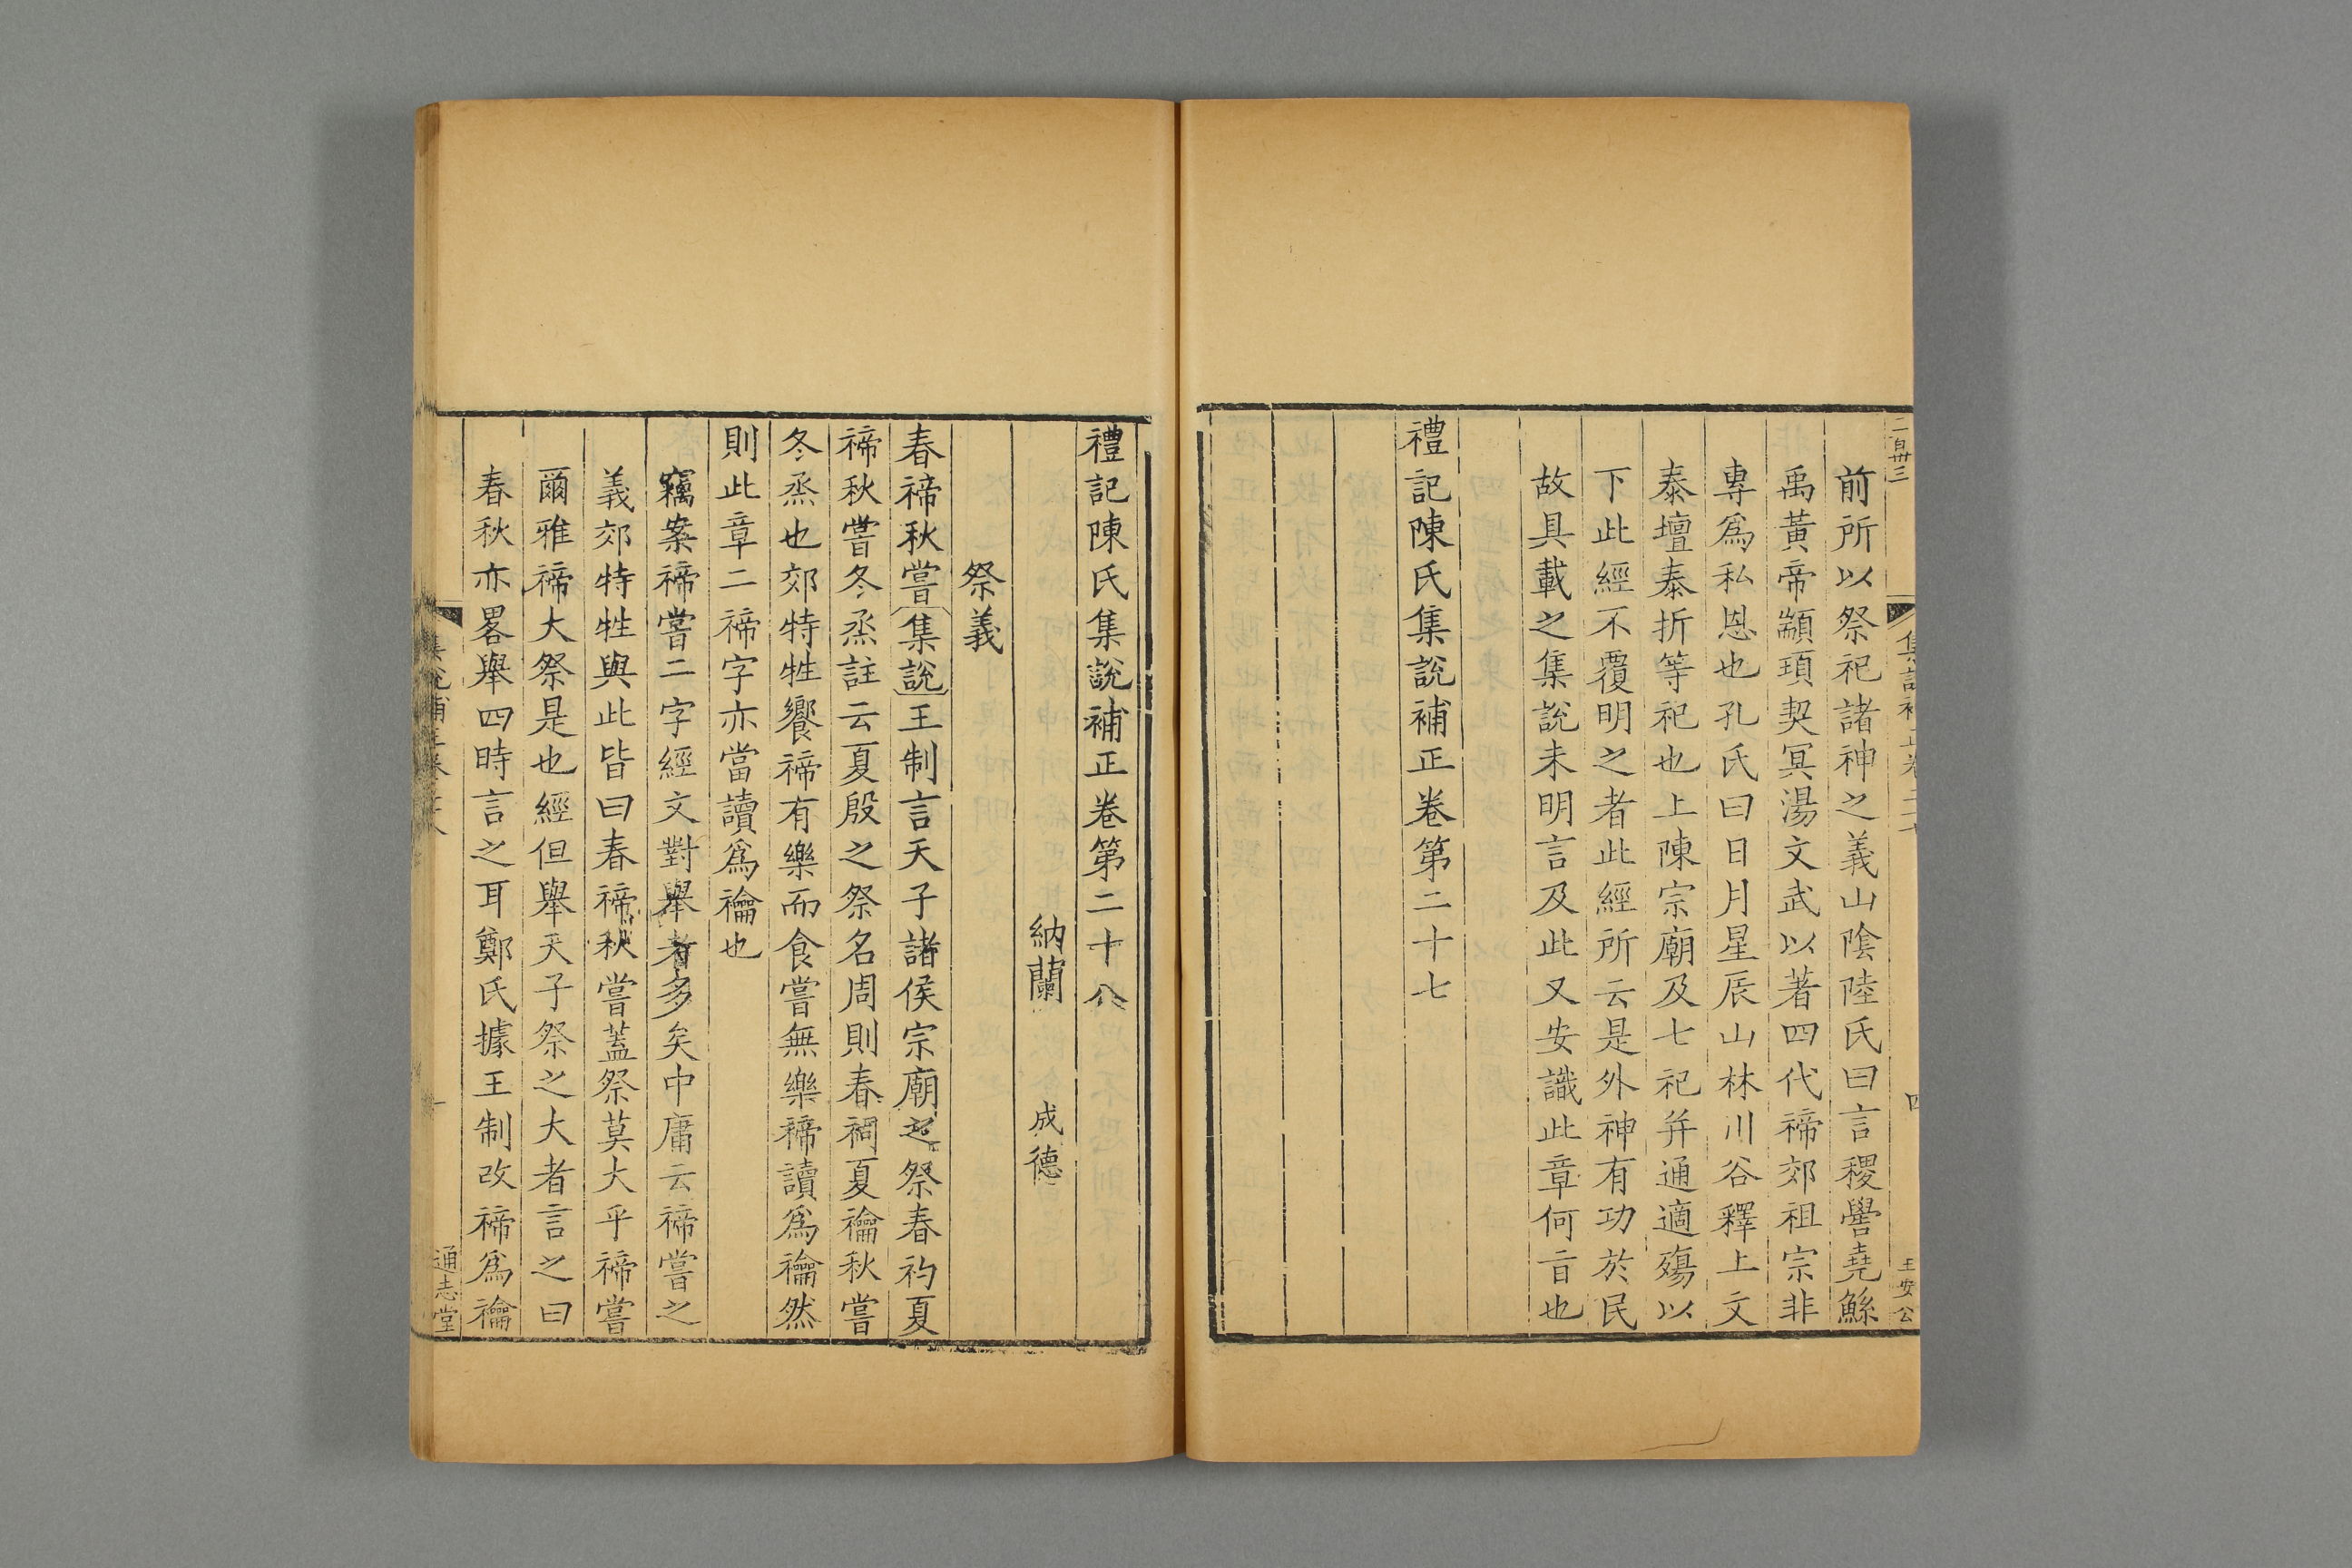 二百卅三
集說補正卷二十七
四
王安公
前所以祭祀諸神之義山陰陸氏曰言稷嚳堯鯀
禹黃帝顓頊契冥湯文武以著四代禘郊祖宗非
專爲私恩也孔氏曰日月星辰山林川谷釋上文
泰壇泰折等祀也上陳宗廟及七祀幷通適殤以
下此經不覆明之者此經所云是外神有功於民
故具載之集說未明言及此又安識此章何㫖也
禮記陳氏集說補正卷第二十七
禮記陳氏集說補正卷第二十八
納蘭 成德
祭義
春禘秋嘗集說王制言天子諸侯宗廟之祭春礿夏
禘秋嘗冬烝註云夏殷之祭名周則春祠夏禴秋嘗
冬烝也郊特牲饗禘有樂而食嘗無樂禘讀爲禴然
則此章二禘字亦當讀爲禴也
竊案禘嘗二字經文對舉者多矣中庸云禘嘗之
義郊特牲與此皆曰春禘秋嘗蓋祭莫大乎禘嘗
爾雅禘大祭是也經但舉天子祭之大者言之曰
春秋亦畧舉四時言之耳鄭氏據王制改禘爲禴
集說補正卷二十八
一
通志堂